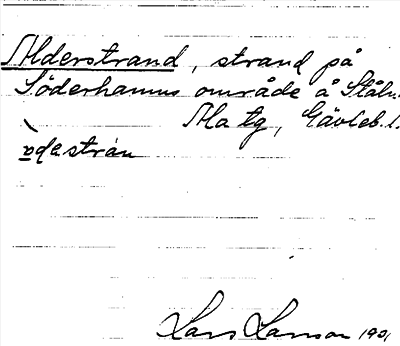 Alderstrand, strand på
Söderhamns område å Ståln.
Ala tg, Gävleb. l.
Lars Larsson 1901